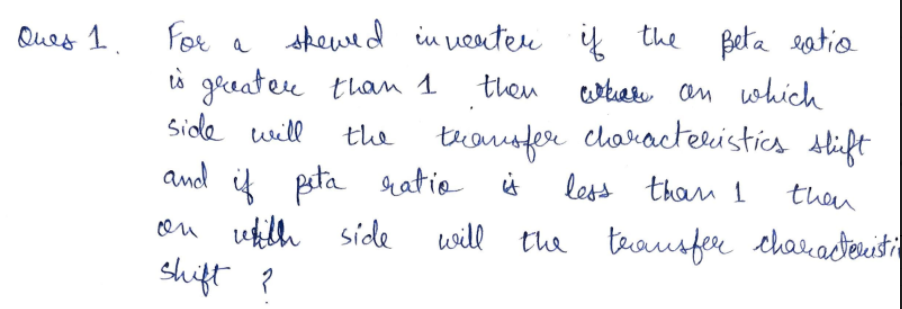 Ques 1. For a skewed inverter if the Beta ratio
is greater than 1 then on which
side will the transfer characteristics shift
and if beta ratio is less than 1 then
on which side will the transfer characteristi
shift ?